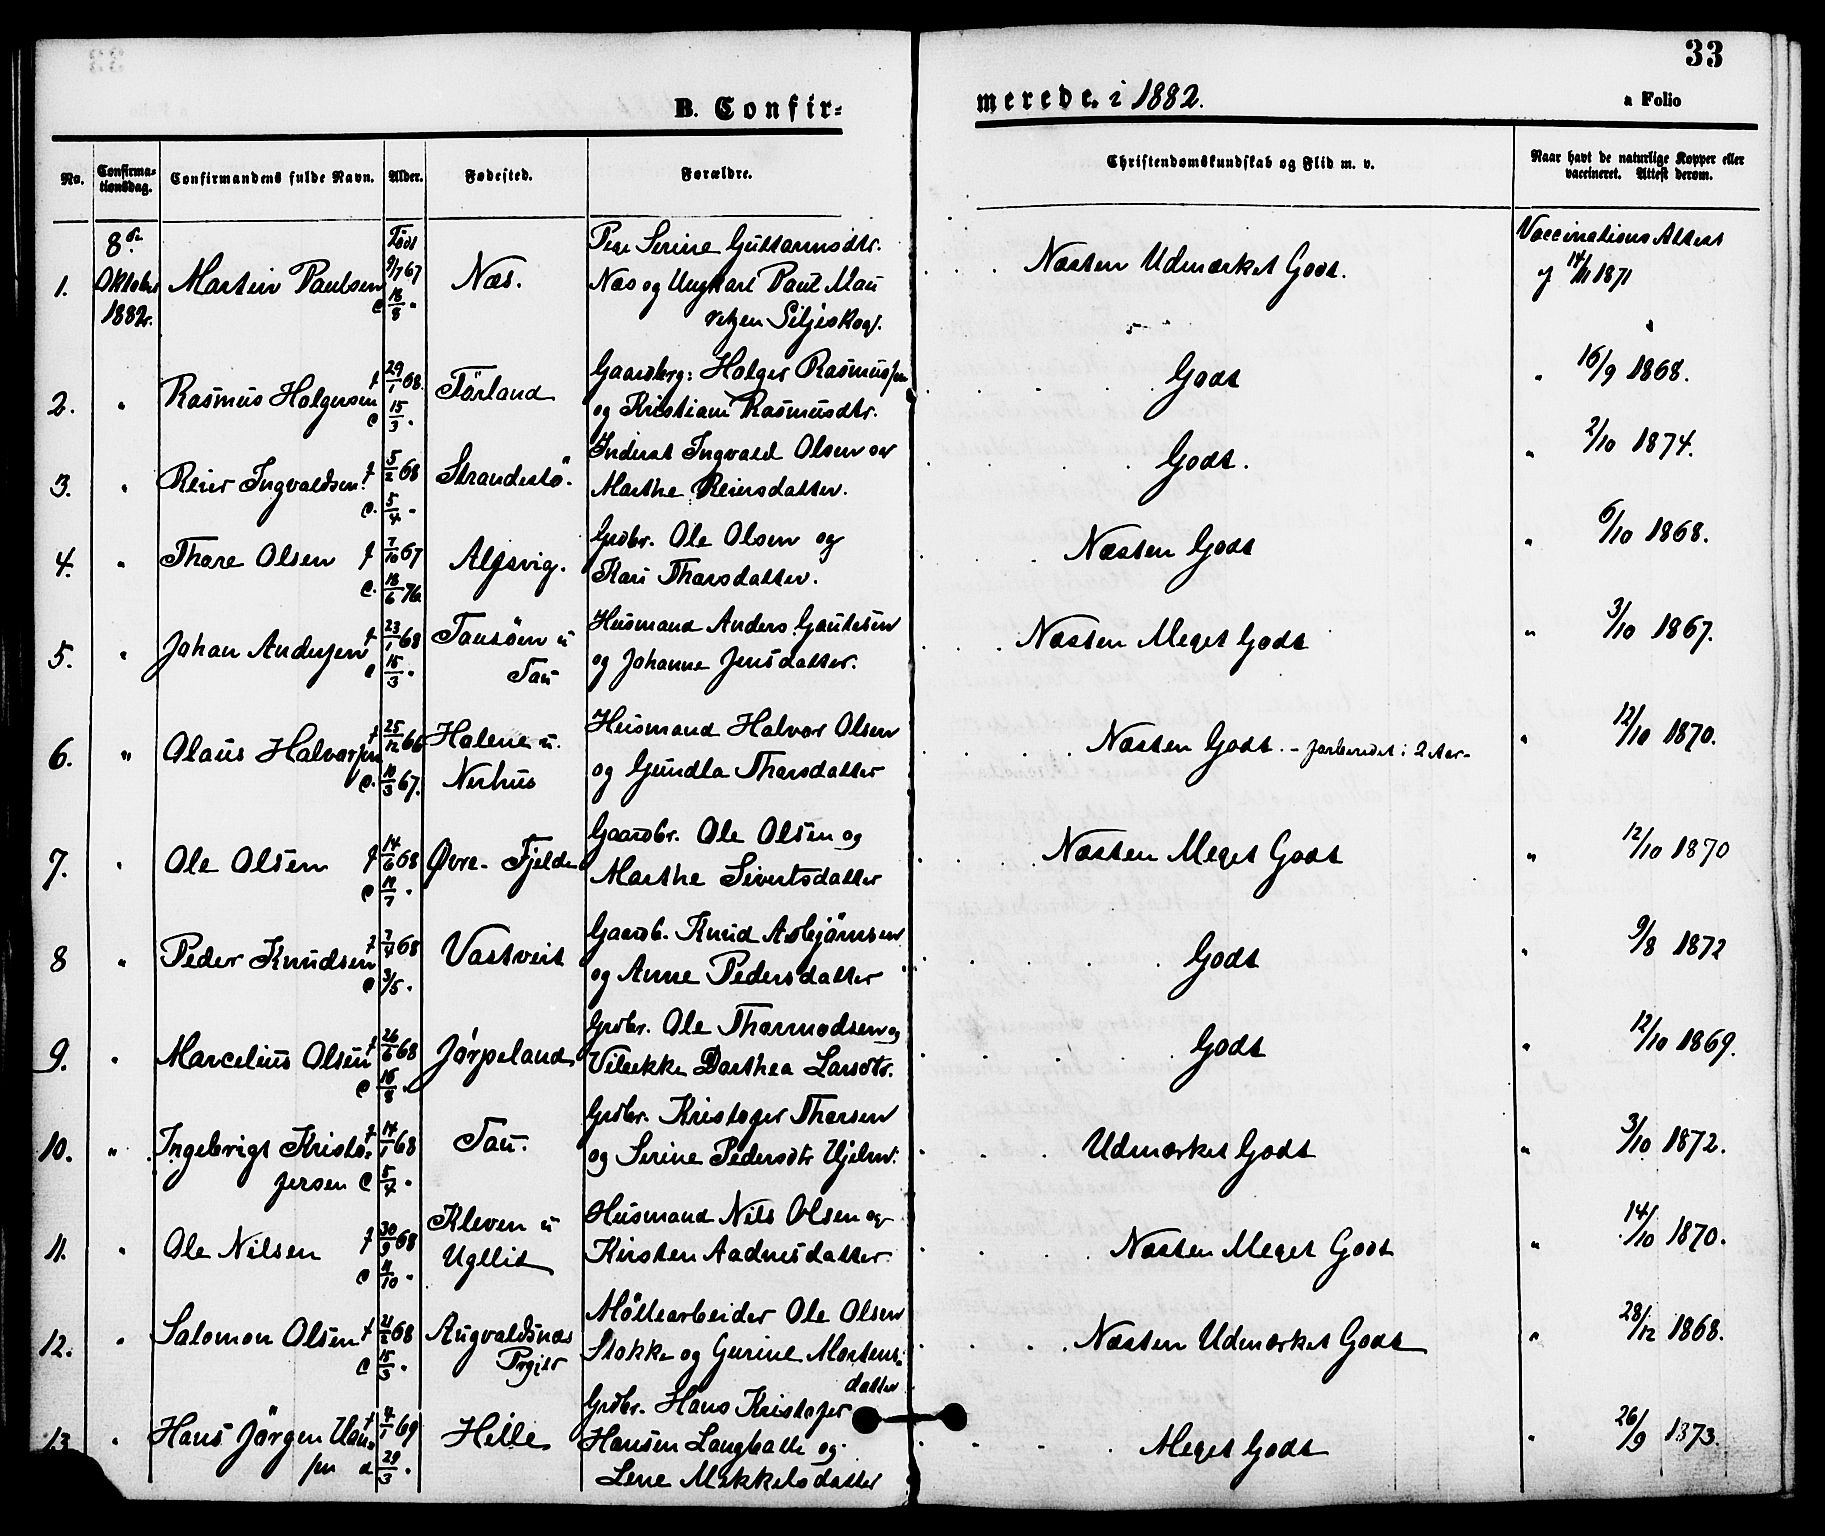 33
B. Confir= merede. i 1882.
a Folio
No. Confirmationsdag. Confirmandens fulde Navn. Alder. Fødested. Forældre. Christendomskundskab og Flid m. v. Naar havt de naturlige Kopper eller vaccineret. Attest derom.
1. 8de Oktober 1882. Martin Paulsen Født 9/7 67 C 18/8 " Næs. Pige Serine Guttormsdtr.
Næs og Ungkarl Paul Mau
ritzen Siljeskog. Næsten Udmærket Godt. Vaccinations Attest
af 14/11 1871
2. " Rasmus Holgersen f 29/1 68. C 15/3 " Törland Gaardbrg: Holger Rasmussen
og Kristiane Rasmusdtr. Godt " 16/9 1868.
3. " Reier Ingvaldsen. f 5/2 68 C. 5/4 " Strandestö. Inderst Ingvald Olsen og
Marthe Reiersdatter. Godt. " 2/10 1874.
4. " Thore Olsen f 7/10 67 C. 18/6 76 Alfsvig. Grdbr. Ole Olsen og
Kari Thorsdatter. Næsten Godt " 6/10 1868.
5. " Johan Andersen f 23/1 68 C 15/3 " Tausöen u
Tau Husmand Anders Gautesen
og Johanne Jensdatter. Næsten Meget Godt " 3/10 1867.
6. " Olaus Halvorsen f 25/12 66 C. 10/3 67. Holene u.
Nerhus Husmand Halvor Olsen
og Gundla Thorsdatter Næsten Godt. - forberedet i 2 Aar- " 12/10 1870.
7. " Ole Olsen f 14/6 68 C 19/7 " Øvre- Fjelde Gaardbr. Ole Olsen og
Marthe Sivertsdatter Næsten Meget Godt " 12/10 1870
8 " Peder Knudsen f 7/4 68 C 3/5 " Vastveit Gaardb. Knud Asbjörnsen
og Anne Pedersdatter Godt " 9/8 1872
9. " Marcelius Olsen f 26/6 68 C 16/8 " Jørpeland Grdbr. Ole Thormodsen og
Vibekke Dorthea Larsdtr. Godt " 12/10 1869.
10. " Ingebrigt Kristo=
fersen f 14/1 68 C 5/4 " Tau. Grdbr. Kristofer Thorsen
og Serine Pedersdtr Hjelm. Udmærket Godt " 3/10 1872.
11. " Ole Nilsen f 30/9 68 C 11/10 " Kleven u
Ugllid Husmand Nils Olsen og
Kirsten Aadnesdatter. Næsten Meget Godt " 14/10 1870.
12. " Salomon Olsen f 21/2 68 C 15/3 " Augvaldsnæs
Prgjld Möllearbeider Ole Olsen
Stokke og Gurine Mortens=
datter Næsten Udmærket Godt " 28/12 1868.
13 " Hans Jörgen Han=
sen f 4/1 69 d 29/3 " Hille Grdbr. Hans Kristofer
Hansen Langballe og
Lene Mikkelsdatter Meget Godt " 26/9 1873.